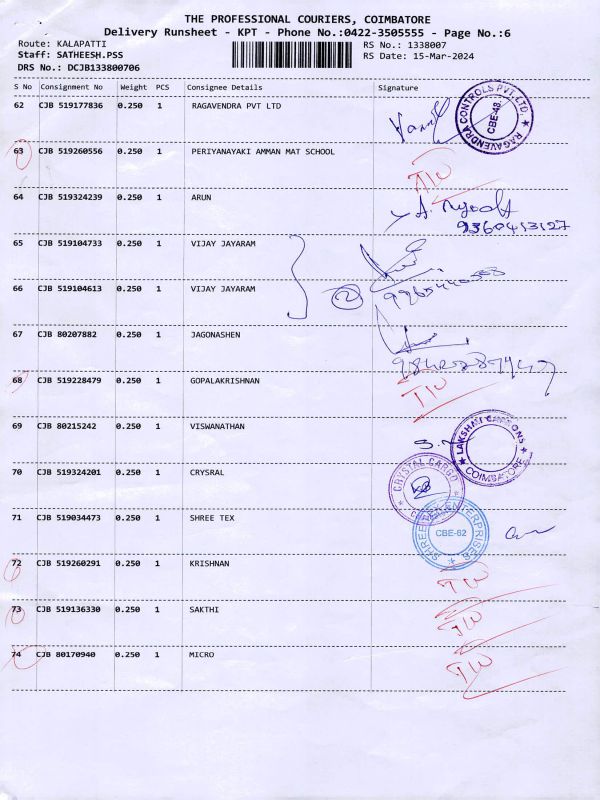 THE PROFESSIONAL COURIERS, COIMBATORE
Delivery Runsheet - KPT - Phone No.:0422-3505555 - Page No.:6
Route: KALAPATTI
RS No.: 1338007
Staff: SATHEESH.PSS
RS Date: 15-Mar-2024
DRS No.: DCJB133800706
S No Consignment No Weight PCS Consignee Details Signature
62 CJB 519177836 0.250 1 RAGAVENDRA PVT LTD
RAGAVENDRA CONTROLS PVT. LTD. ★
CBE-48.
63 CJB 519260556 0.250 1 PERIYANAYAKI AMMAN MAT SCHOOL
64 CJB 519324239 0.250 1 ARUN
9360413127
65 CJB 519104733 0.250 1 VIJAY JAYARAM
66 CJB 519104613 0.250 1 VIJAY JAYARAM
2
67 CJB 80207882 0.250 1 JAGONASHEN
68 CJB 519228479 0.250 1 GOPALAKRISHNAN
69 CJB 80215242 0.250 1 VISWANATHAN
★ LAKSHMI CARTONS ★
COIMBATORE
70 CJB 519324201 0.250 1 CRYSRAL
CRYSTAL CARGO
71 CJB 519034473 0.250 1 SHREE TEX
SHREE ENTERPRISES ★
CBE-62
72 CJB 519260291 0.250 1 KRISHNAN
73 CJB 519136330 0.250 1 SAKTHI
74 CJB 80170940 0.250 1 MICRO